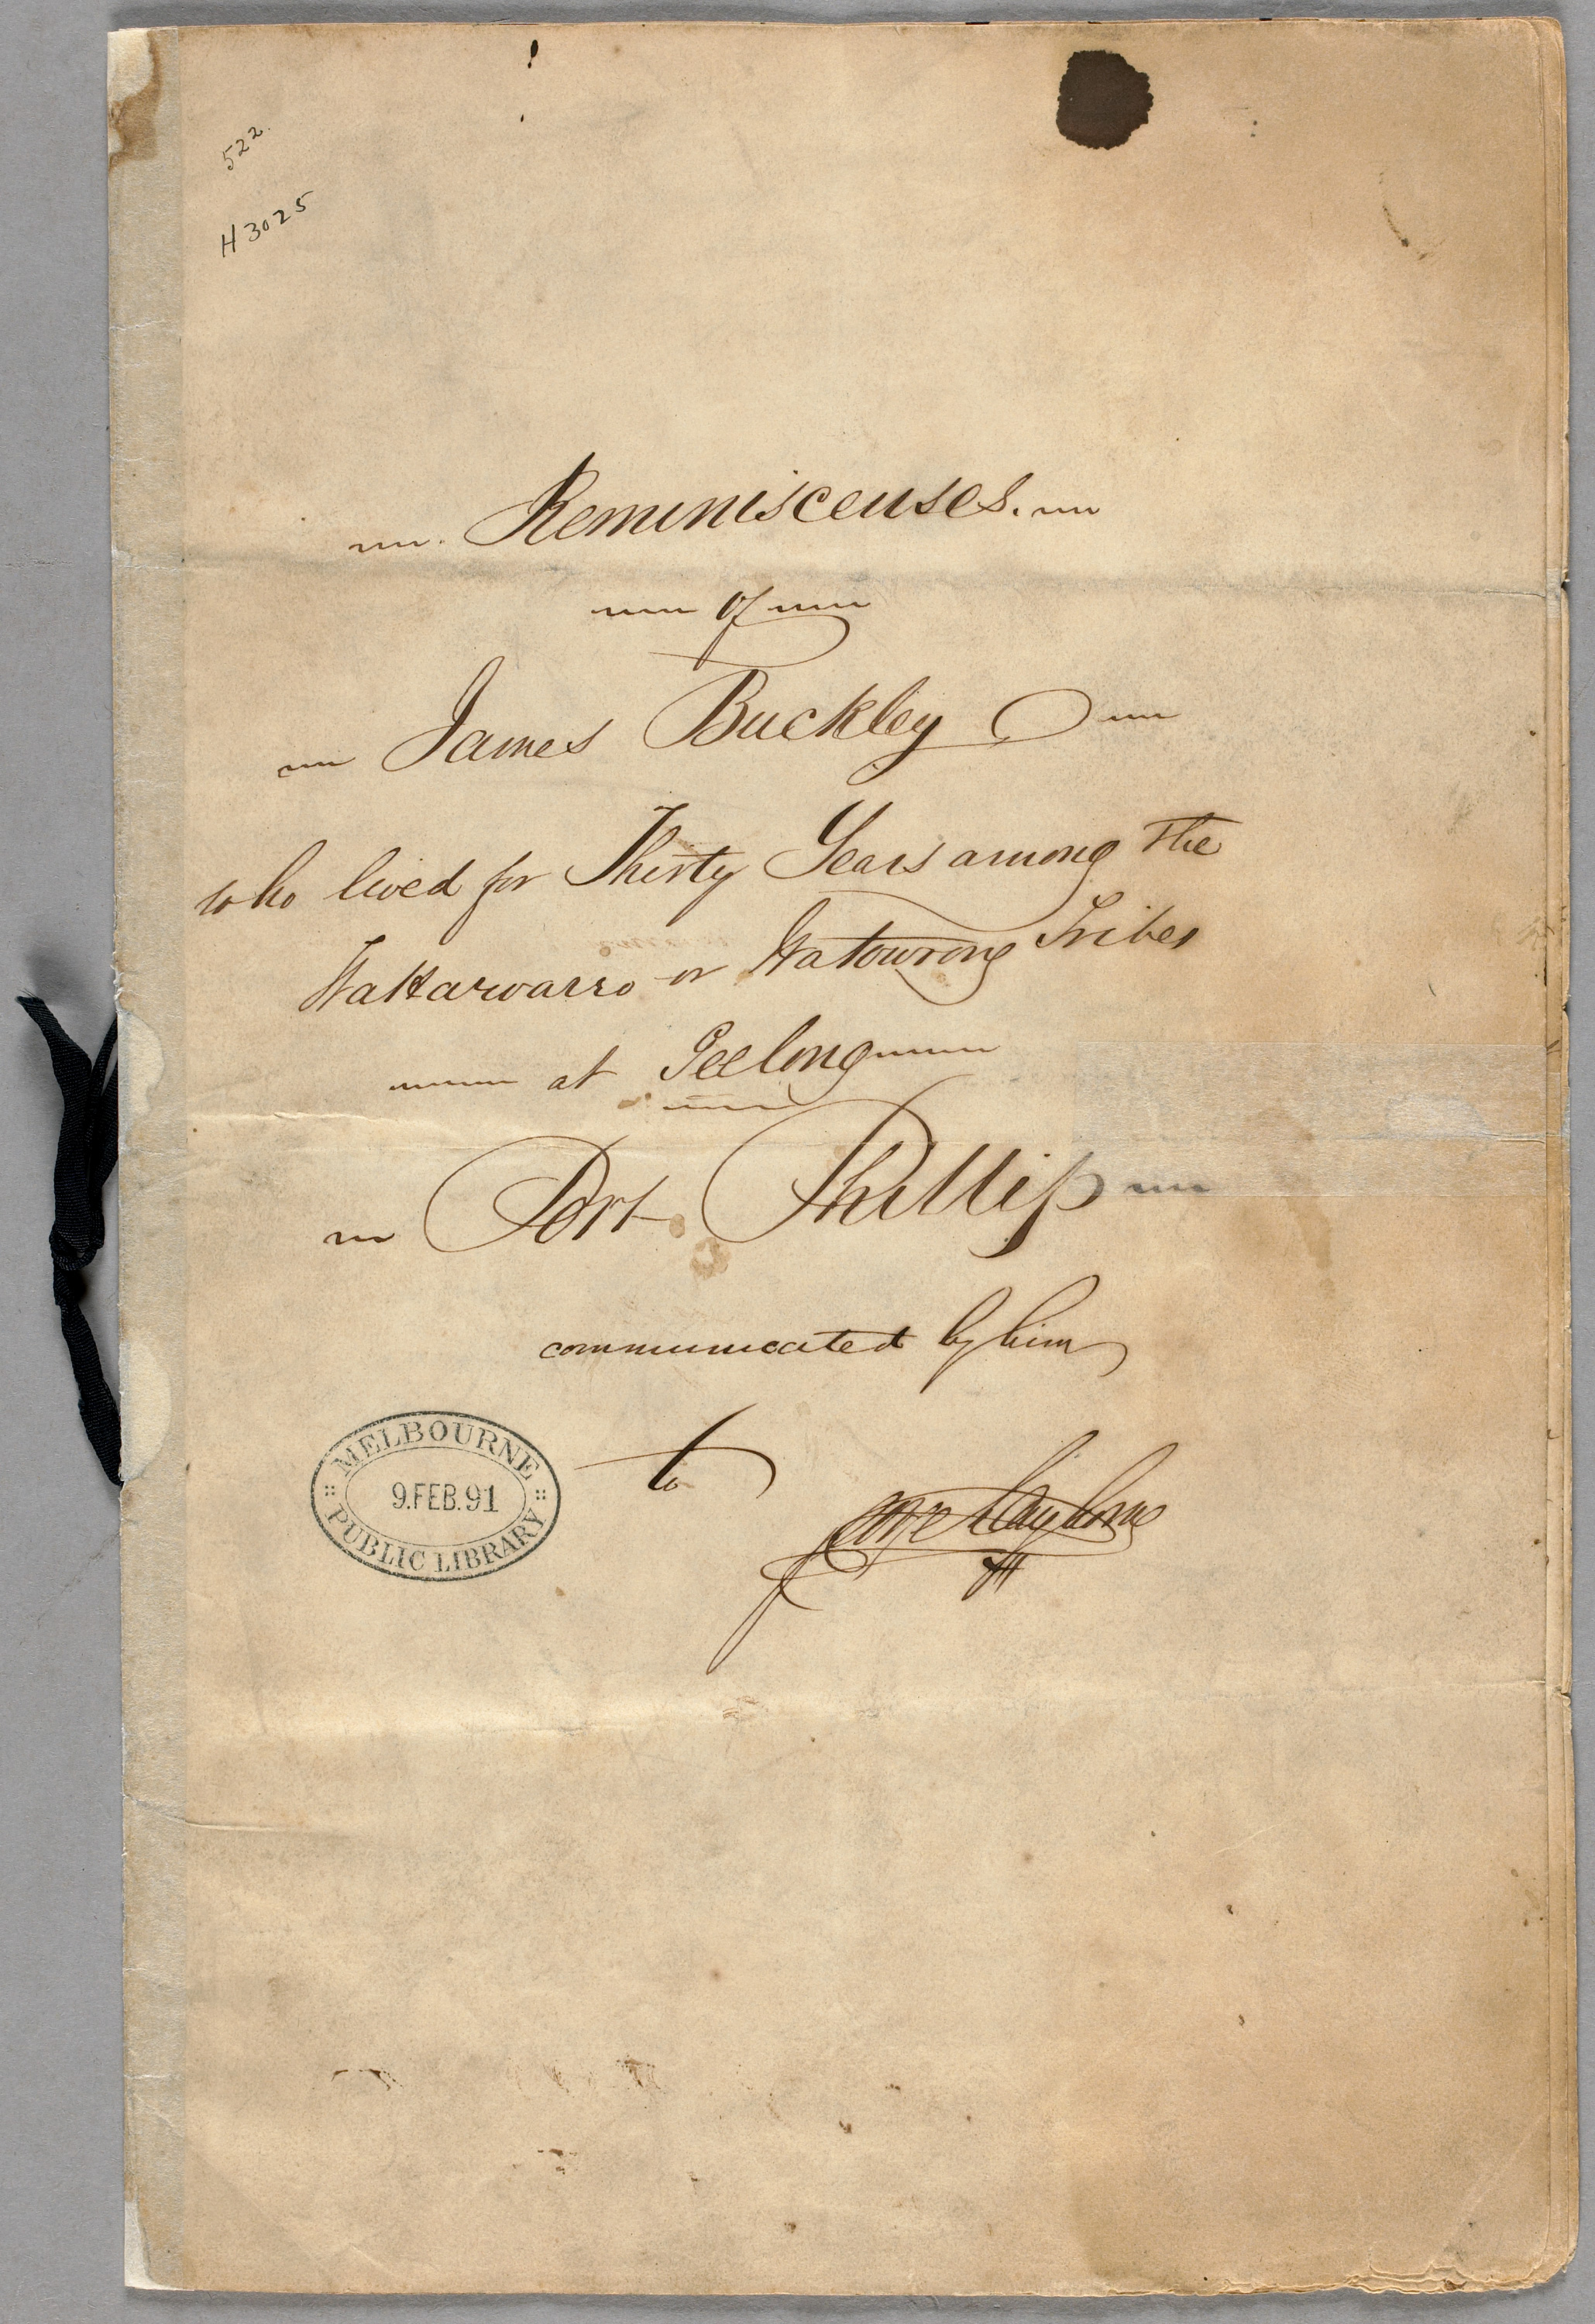 522.
H 3025
Reminiscenses.
of
James Buckley
who lived for Thirty Years among the
Wallawarro or Watourong Tribes
at Geelong
Port Phillip
communicated by him
to
George Langhorne
MELBOURNE
9.FEB.91
PUBLIC LIBRARY